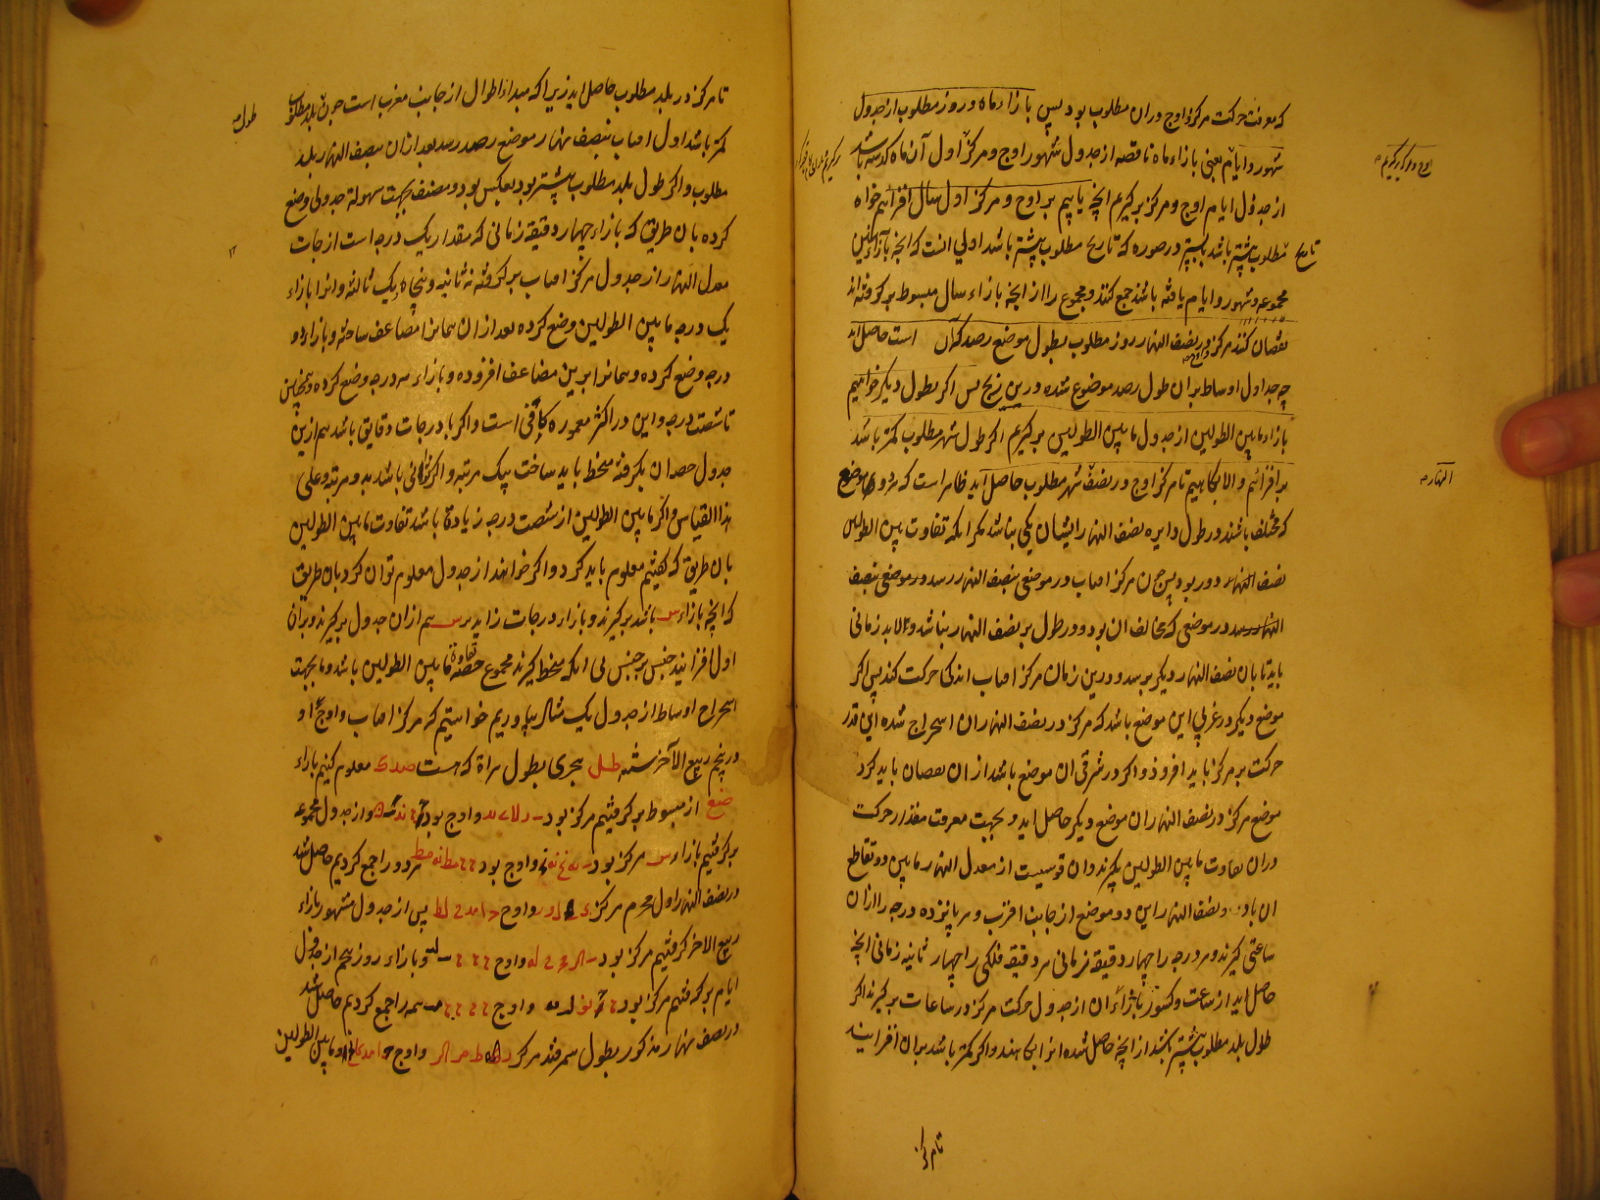 که معرفت حرکت مرکز و اوج دران مطلوب بود پس بازاء ماه و روز مطلوب از جدول
شهور و ایام یعنی بازاء ماه ناقصه از جدول شهور اوج و مرکز اول آن ماه که
از جدول ایام اوج و مرکز برگیریم انچه یابیم بر اوج و مرکز اول سال افزائیم خواه
تاریخ مطلوب پیشتر باشد در صوره که تاریخ مطلوب پیشتر باشد اولی انست که انچه بازاء
مجموعه و شهور و ایام یافته باشند جمع کنند و مجموع را از انچه بازاء سال مبسوط برگرفته اند
نقصان کنند مرکز در نصف النهار روز مطلوب بطول موضع رصد که آن است حاصل اید
چه جداول اوساط بران طول رصد موضوع شده درین زیج پس اگر بطول دیگر خواهیم
بازاء مابین الطولین از جدول مابین الطولین برگیریم اگر طول شهر مطلوب کمتر باشد
برافزائیم و الا بکاهیم تا مرکز اوج در نصف شهر مطلوب حاصل آید ظاهر است که هر دو موضع
که مختلف باشند در طول دایره نصف النهار ایشان یکی نباشد مگر انکه تفاوت بین الطولین
نصف النهار دور بود پس چون مرکز افتاب در موضعی بنصف النهار رسد در موضعی بنصف
النهار رسد در موضعی که مخالف ان بود در طول بر نصف النهار نباشد و لابد زمانی
باید تا بان نصف النهار دیگر برسد و درین زمان مرکز افتاب اندکی حرکت کند پس اگر
موضع دیگر در غربی این موضع باشد که مرکز در نصف النهار ان استخراج شده این قدر
حرکت بر مرکز باید افزود و اگر در شرقی ان موضع باشد از ان نقصان باید کرد
موضع مرکز در نصف النهار ان موضع دیگر حاصل اید و بجهت معرفت مقدار حرکت
دران تفاوت مابین الطولین بگیرند و ان قوسیست از معدل النهار مابین دو تقاطع
ان با دو نصف النهار این دو موضع از جانب اقرب و هر پانزده درجه را ازان
ساعتی گیرند و هر درجه را چهار دقیقه زمانی هر دقیقه فلکی را چهار ثانیه زمانی انچه
حاصل اید از ساعت و کسور بازاء ان از جدول حرکت مرکز در ساعات برگیرند اگر
طول بلد مطلوب بیشتر باشد از انچه حاصل شده انرا بکاهند و اگر کمتر باشد بران افزایند
تا مرکز
تا مرکز در بلد مطلوب حاصل اید زیرا که مبداء اطوال از جانب مغرب است چون بلد مطلوب
طول
کمتر باشد اول افتاب بنصف نهار موضع رصد رسد بعد ازان بنصف النهار بلد
مطلوب و اگر طول بلد مطلوب بیشتر بود بعکس بود و مصنف بجهت سهولة جدولی وضع
کرده بان طریق که بازاء چهار دقیقه زمانی که مقدار یک درجه است از اجزاء
معدل النهار از جدول مرکز افتاب برگرفته نه ثانیه و پنجاه و یک ثالثه و انرا بازاء
یک درجه مابین الطولین وضع کرده بعد از ان همانرا مضاعف ساخته و بازاء دو
درجه وضع کرده و همانرا برین مضاعف افزوده و بازاء سه درجه وضع کرده و همچنین
تا شصت درجه و این در اکثر معموره کافی است و اگر با درجات دقایق باشد هم ازین
جدول حصه ان بگرفته منحط باید ساخت بیک مرتبه و اگر ثوانی باشد بدو مرتبه و علی
هذا القیاس و اگر مابین الطولین از شصت درجه زیاده باشد تفاوت مابین الطولین
بان طریق که گفتیم معلوم باید کرد و اگر خواهند از جدول معلوم توان کرد بان طریق
که انچه بازاء س باشد برگیرند و بازاء درجات زاید بر س هم ازان جدول برگیرند و بران
اول افزایند جنس بر جنس بی انکه منحط گیرند مجموع حصه تفاوة مابین الطولین باشد و ما بجهت
استخراج اوساط از جدول یک مثال بیاوریم خواستیم که مرکز افتاب و اوج او
در پنجم ربیع الآخر سنه هجری بطول هراة که هست معلوم کنیم بازاء
از مبسوط برگرفتیم مرکز بود و اوج بود و از جدول مجموعه
برگرفتیم بازاء س مرکز بود و اوج بود هر دو را جمع کردیم حاصل شد
در نصف النهار اول محرم مرکز و اوج پس از جدول شهور بازاء
ربیع الاخر گرفتیم مرکز بود و اوج و بازاء روز پنجم از جدول
ایام برگرفتیم مرکز بود و اوج همه را جمع کردیم حاصل شد
در نصف نهار مذکور بطول سمرقند مرکز و اوج و مابین الطولین